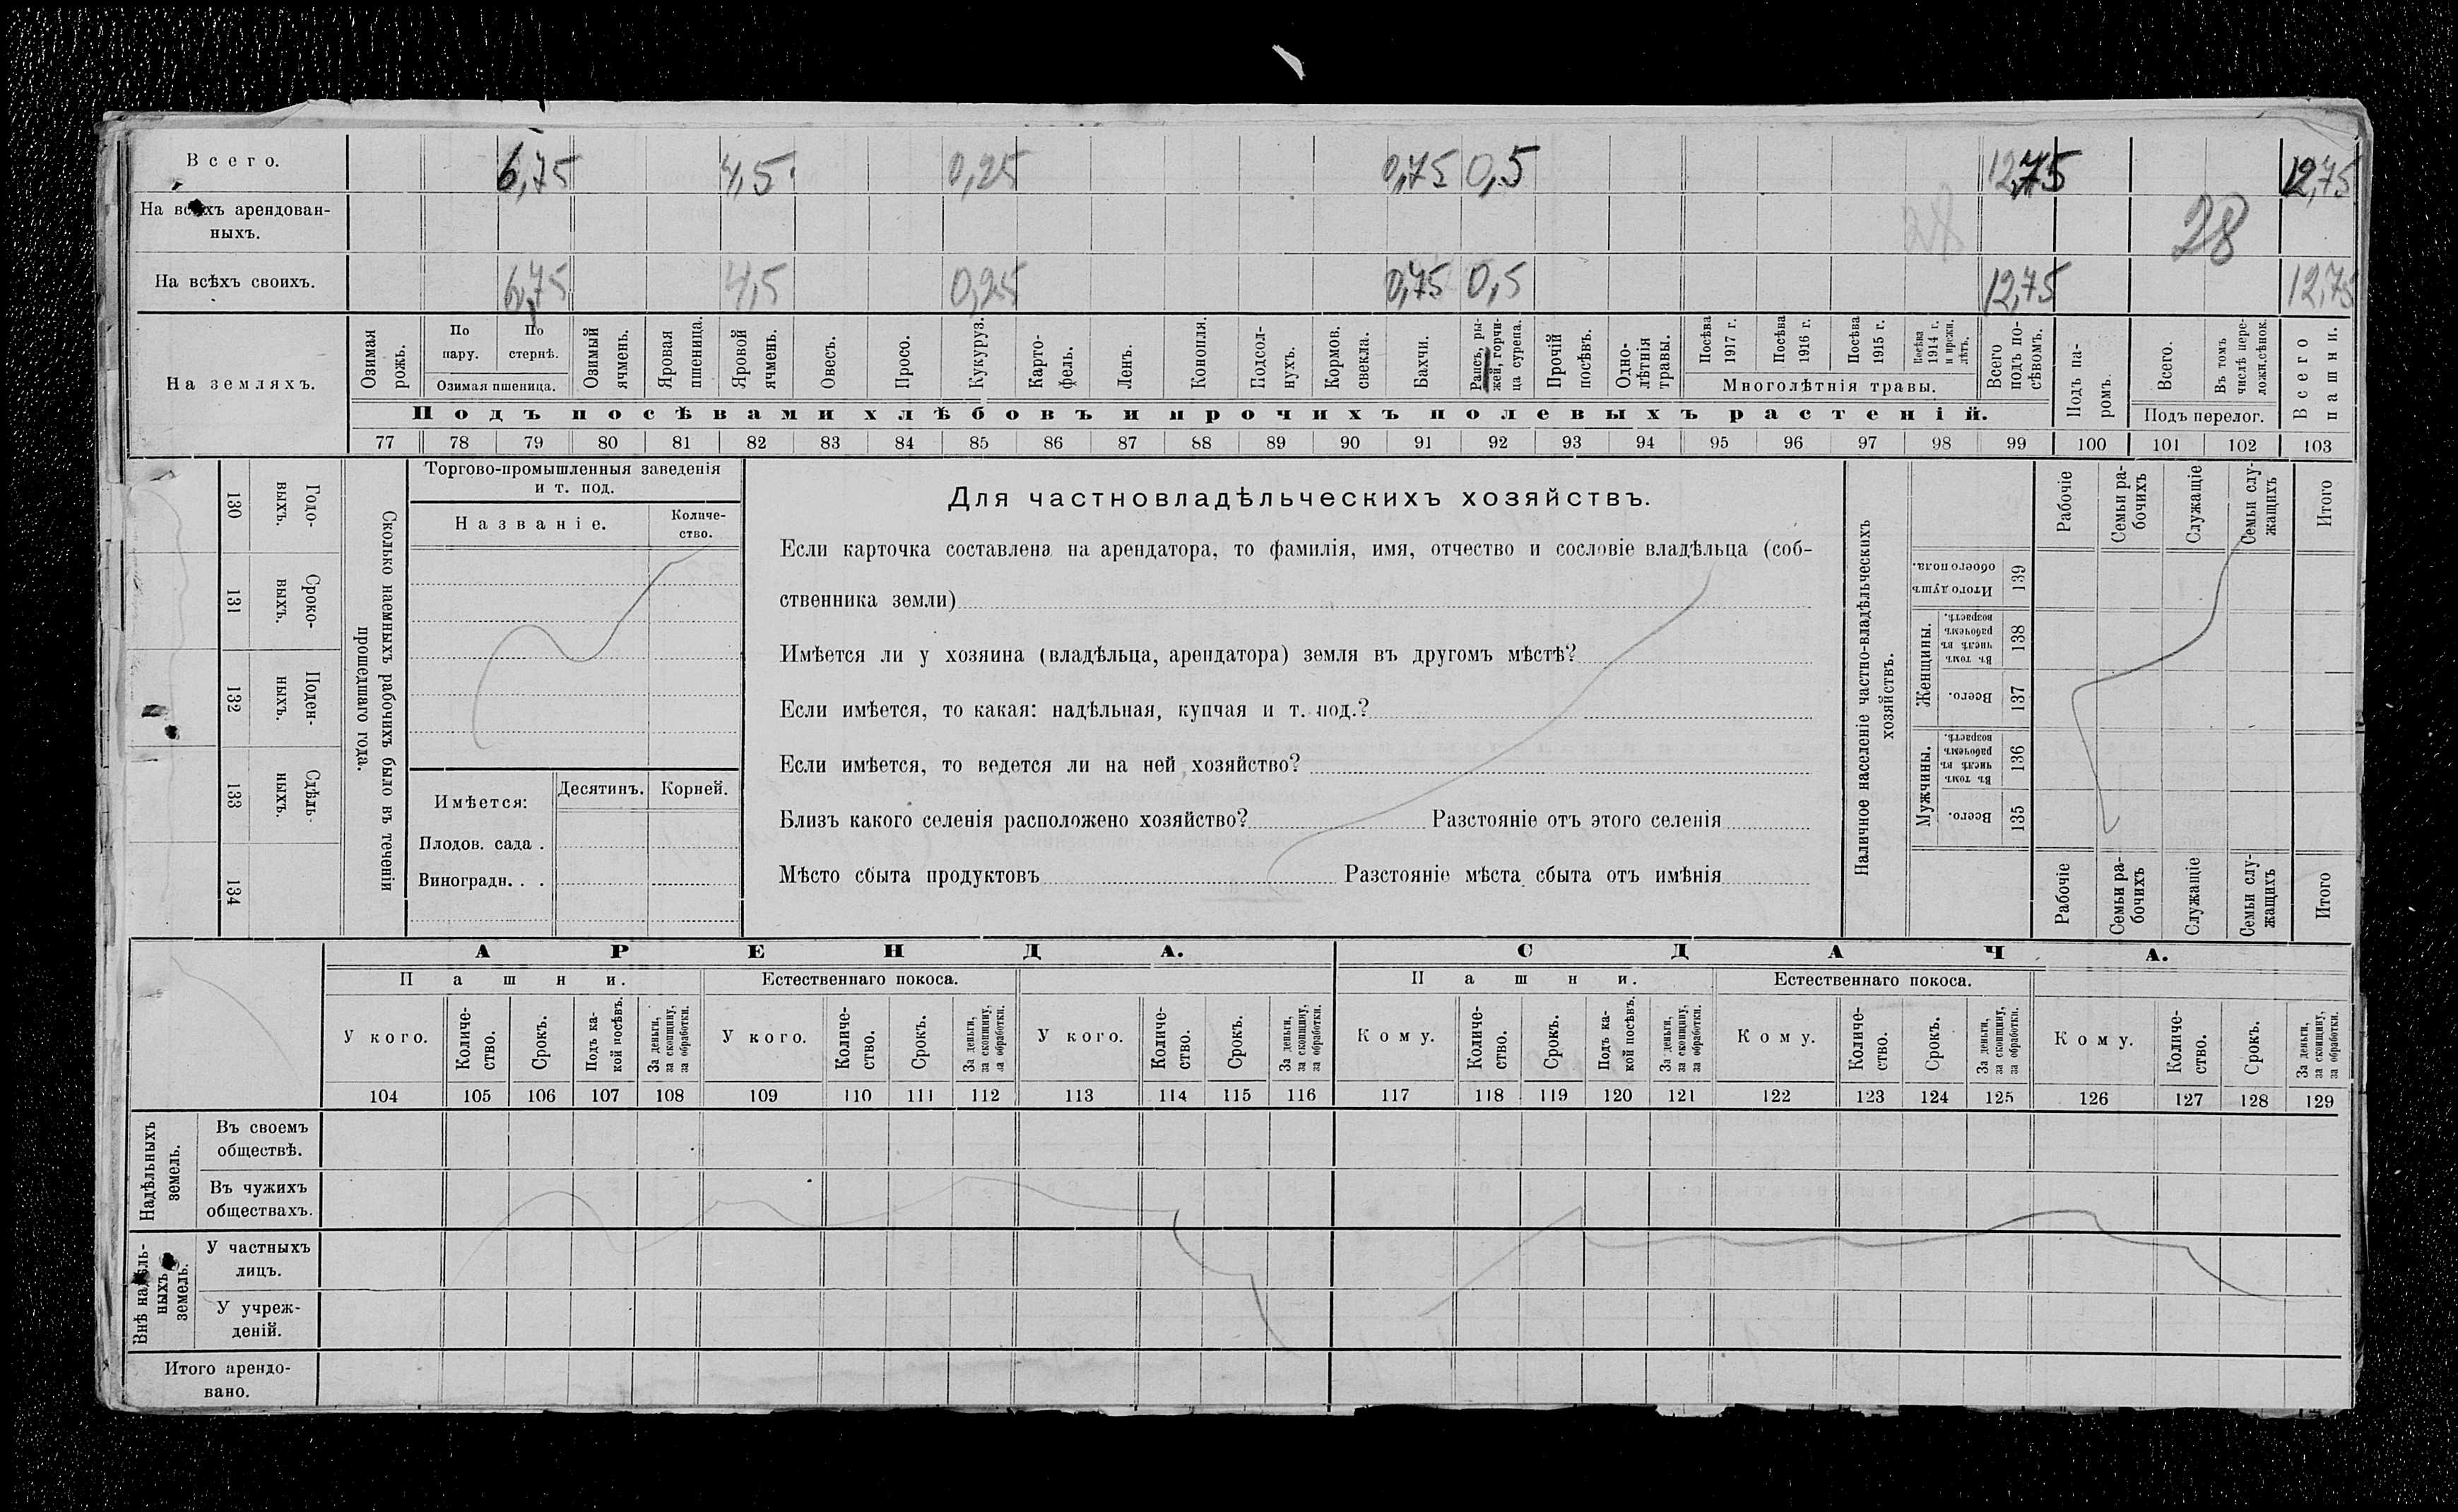 Всего. 6,75 4,5 0,25 0,75 0,5 12,75 12,75
На всѣхъ арендован-
ныхъ. 28 28
На всѣхъ своихъ. 6,75 4,5 0,25 0,75 0,5 12,75 12,75
На земляхъ.
Озимая рожь.
По пару.
По стернѣ.
Озимая пшеница.
Озимый ячмень.
Яровая пшеница.
Яровой ячмень.
Овесъ.
Просо.
Кукуруз.
Карто-
фель.
Ленъ.
Конопля.
Подсол-
нухъ.
Кормов. свекла.
Бахчи.
Рапсъ, ры-
жей, горчи-
ца сурепа.
Прочій посѣвъ.
Одно-
лѣтнія травы.
Посѣва 1917 г.
Посѣва 1916 г.
Посѣва 1915 г.
Посѣва 1914 г. и прежн. лѣтъ.
Многолѣтнія травы.
Всего подъ по-
сѣвомъ.
Подъ па-
ромъ.
Всего.
Въ томъ числѣ пере-
ложн. сѣнок.
Подъ перелог.
Всего пашни.
Подъ посѣвами хлѣбовъ и прочихъ полевыхъ растеній.
77 78 79 80 81 82 83 84 85 86 87 88 89 90 91 92 93 94 95 96 97 98 99 100 101 102 103
130 Годо-
выхъ.
131 Сроко-
выхъ.
132 Поден-
ныхъ.
133 Сдѣль-
ныхъ.
134
Сколько наемныхъ рабочихъ было въ теченіи
прошедшаго года.
Торгово-промышленныя заведенія
и т. под.
Названіе.
Количе-
ство.
Имѣется: Десятинъ. Корней.
Плодов. сада .
Виноградн. . .
Для частновладѣльческихъ хозяйствъ.
Если карточка составлена на арендатора, то фамилія, имя, отчество и сословіе владѣльца (соб-
ственника земли)
Имѣется ли у хозяина (владѣльца, арендатора) земля въ другомъ мѣстѣ?
Если имѣется, то какая: надѣльная, купчая и т. под.?
Если имѣется, то ведется ли на ней хозяйство?
Близъ какого селенія расположено хозяйство? Разстояніе отъ этого селенія
Мѣсто сбыта продуктовъ Разстояніе мѣста сбыта отъ имѣнія
Наличное населеніе частно-владѣльческихъ
хозяйствъ.
Рабочіе
Семьи ра-
бочихъ
Служащіе
Семьи слу-
жащихъ
Итого
Итого душъ обоего пола. 139
Женщины.
Въ томъ числѣ въ рабочемъ возрастѣ. 138
Всего. 137
Мужчины.
Въ томъ числѣ въ рабочемъ возрастѣ. 136
Всего. 135
Рабочіе
Семьи ра-
бочихъ
Служащіе
Семьи слу-
жащихъ
Итого
АРЕНДА. СДАЧА.
Пашни. Естественнаго покоса. Пашни. Естественнаго покоса.
У кого.
Количе-
ство.
Срокъ.
Подъ ка-
кой посѣвъ.
За деньги, за скопщину, за обработки.
У кого.
Количе-
ство.
Срокъ.
За деньги, за скопщину, за обработки.
У кого.
Количе-
ство.
Срокъ.
За деньги, за скопщину, за обработки.
Кому.
Количе-
ство.
Срокъ.
Подъ ка-
кой посѣвъ.
За деньги, за скопщину, за обработки.
Кому.
Количе-
ство.
Срокъ.
За деньги, за скопщину, за обработки.
Кому.
Количе-
ство.
Срокъ.
За деньги, за скопщину, за обработки.
104 105 106 107 108 109 110 111 112 113 114 115 116 117 118 119 120 121 122 123 124 125 126 127 128 129
Надѣльныхъ
земель.
Въ своемъ
обществѣ.
Въ чужихъ
обществахъ.
Внѣ надѣль-
ныхъ
земель.
У частныхъ
лицъ.
У учреж-
деній.
Итого арендо-
вано.